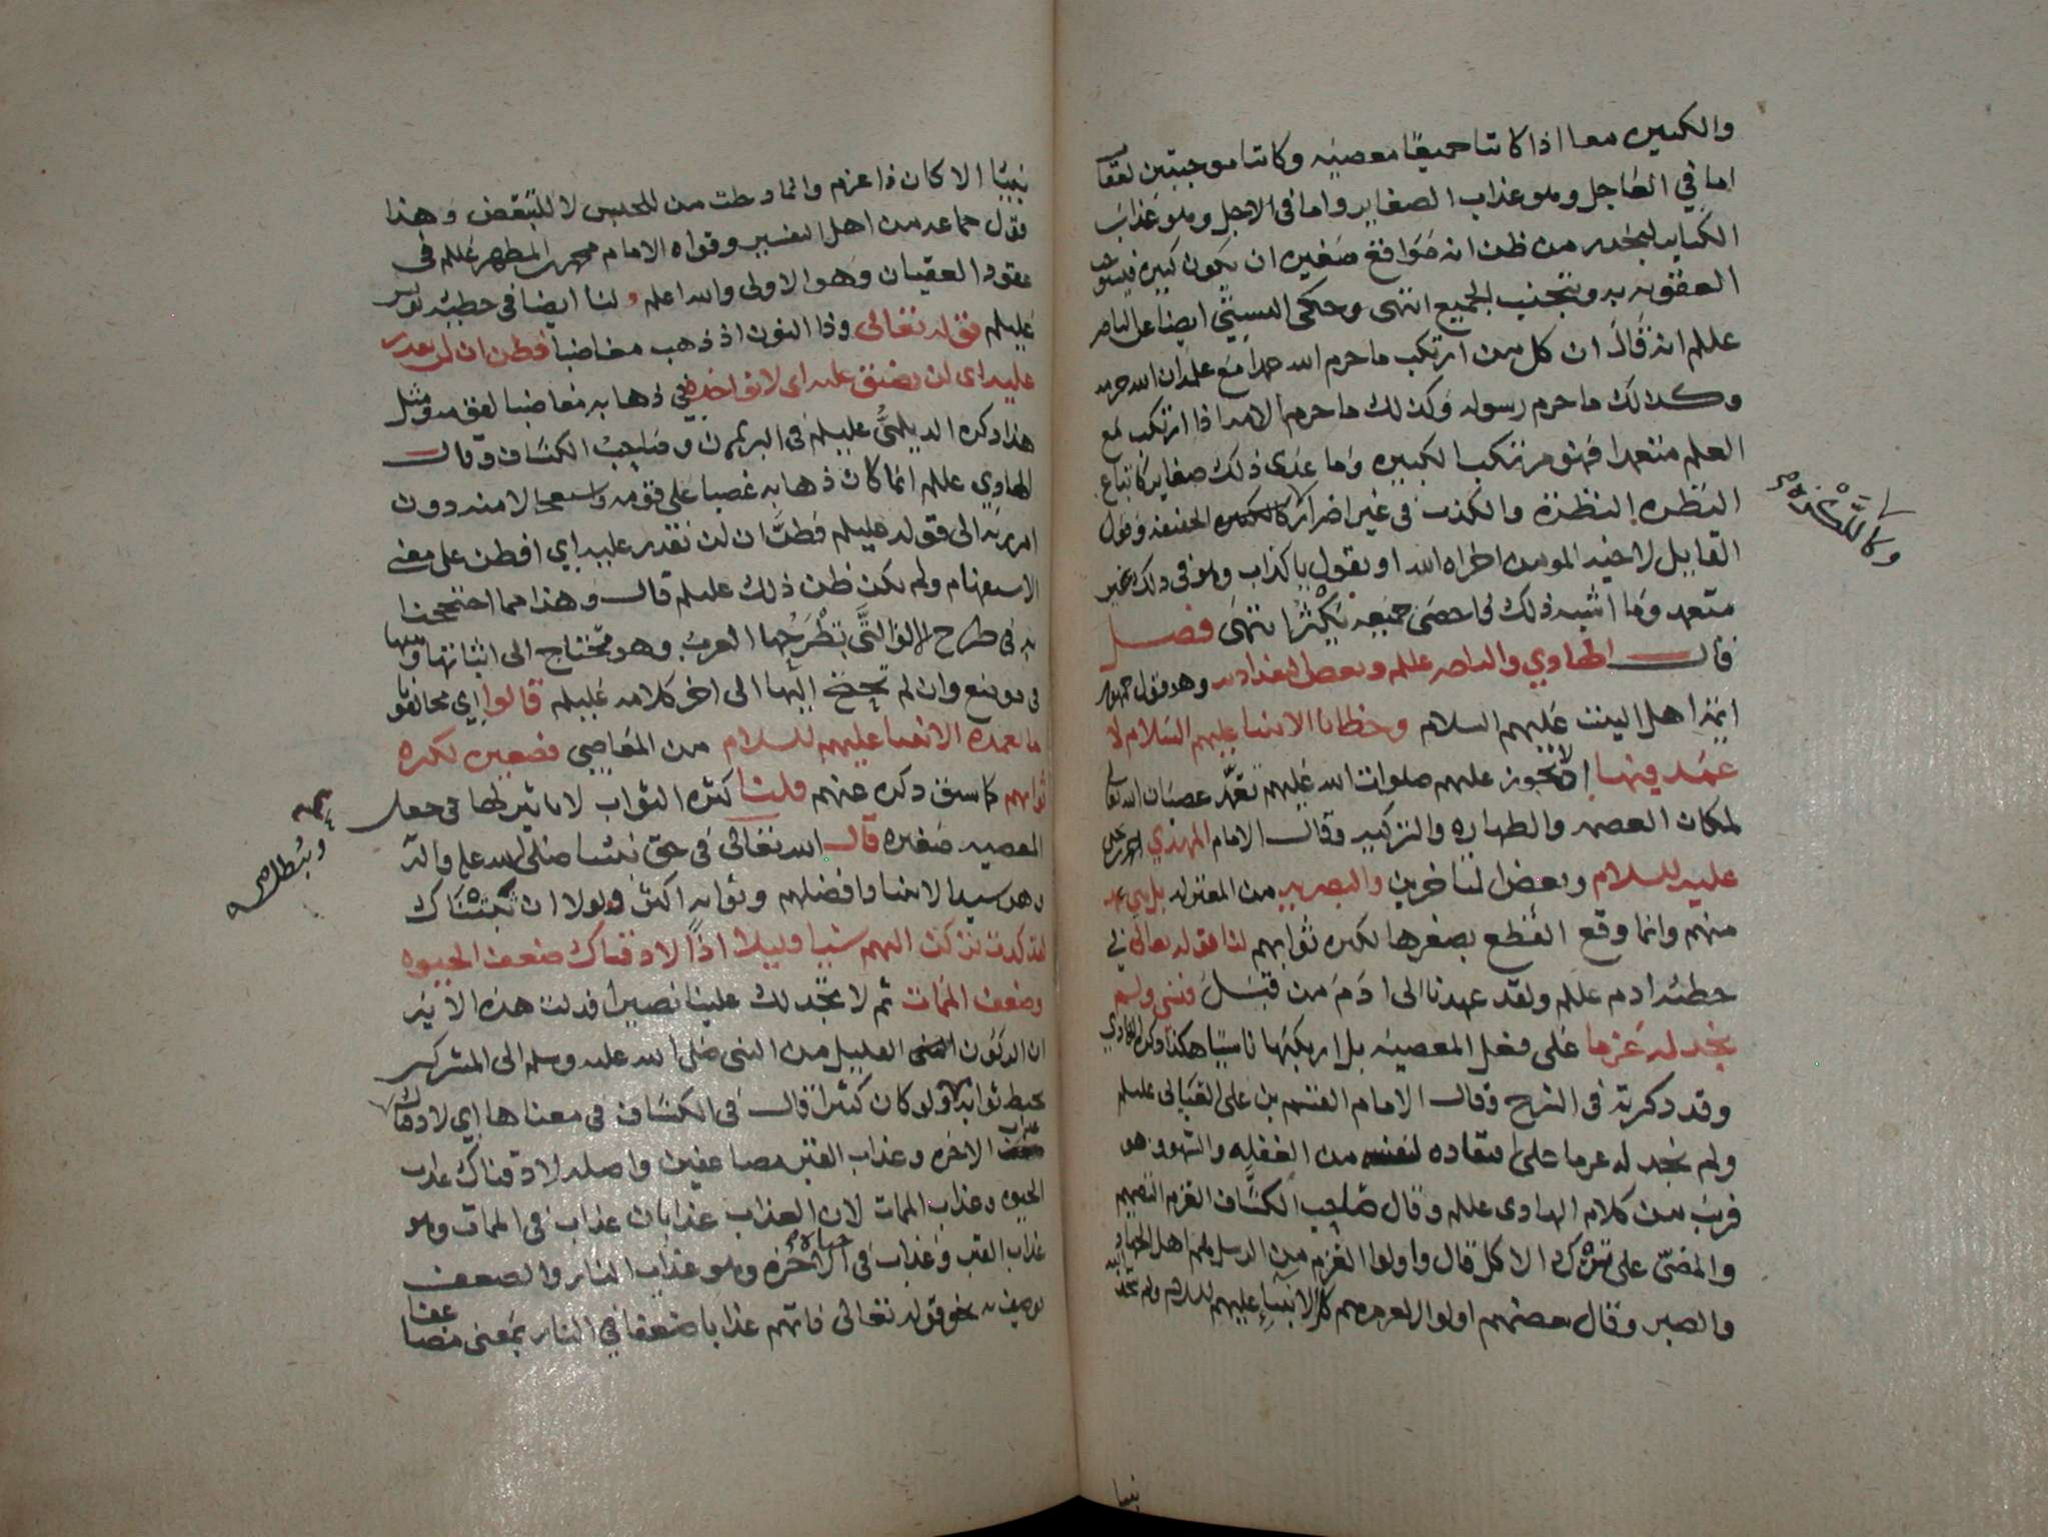 والكبيره معا اذا كانتا جميعًا معصيه وكانتا موجبتين لعقاب
اما في العاجل وهو عذاب الصغاير واما في الاجل وهو عذاب
الكباير ليحذر من ظن انه مواقع صغيره ان يكون كبيره فيستوجب
العقوبه به ويتجنب الجميع انتهى وحكى البستي ايضا عن الناصر
عللم انه قال ان كل من ارتكب ما حرم الله عمدا مع علمه ان الله حرمه
وكذلك ما حرم رسوله وكذلك ما حرم الامه اذا ارتكب مع
العلم متعمدا فهو مرتكب الكبيره وما عدى ذلك صغاير كاتباع
النظره النظرة والكذب في غير اضرار كالكلمه الخفيفه وقول
القايل لاخيه المومن اخزاه الله او يقول ياكذاب وهو في ذلك غير
متعمد وما اشبه ذلك فاحصى جميعه يكثر انتهى فصل
قال الهادي والناصر عللم وبعض البغداديه وهو قول جمهور
ايمة اهل البيت عليهم السلام وخطايا الانبيا عليهم السلام لا
عمد فيها اذ لا يجوز عليهم صلوات الله عليهم تعمد عصيان الله تعالى
لمكان العصمه والطهاره والتزكيه وقال الامام المهدي احمد بن يحيى
عليه السلام وبعض المتاخرين والبصريه من المعتزله بل هي عمد
منهم وانما وقع القطع بصغرها لكثره ثوابهم لنا قوله تعالى في
خطيئه ادم عللم ولقد عهدنا الى ادم من قبل فنسي ولم
نجد له عزما على فعل المعصيه بل ارتكبها ناسيا هكذا ذكره الهادي
وقد ذكرته في الشرح وقال الامام القسم بن علي العياني عليلم
ولم نجد له عزما على من الغفله والسهو وهو
قريب من كلام الهادي عللم وقال صاحب الكشاف العزم التصميم
والمضي على ترك الاكل قال واولوا العزم من الرسل هم اهل الجهاد
والصبر وقال بعضهم اولوا العزم هم كل الانبياء عليهم السلام ولم يتخذ الله
نبيا
نبيًا الا كان ذا عزم وانما دخلت من للجنس لا للتبعيض وهذا
قول جماعه من اهل التفسير وقواه الامام محمد بن المطهر عللم في
عقود العقيان وهو الاولى والله اعلم ولنا ايضا في خطيئه يونس
عليلم قوله تعالى وذا النون اذ ذهب مغاضبا فظن ان لن نقدر
عليه اي لن نضيق عليه اي لا نواخذه في ذهابه مغاضبا لقومه ومثل
هذا ذكره الديلمي عليلم في البرهان وصاحب الكشاف وقال
الهادي عللم انما كان ذهابه غضبا على قومه واستعجالا منه دون
امر ربه الى قوله عليلم فظن ان لن نقدر عليه اي افظن على معنى
الاستفهام ولم يكن ظن ذلك عليلم قال وهذا مما احتججنا
به في طرح الالف التي تطرحها العرب وهو محتاج الى اثباتها ويثبتها
في موضع وان لم تحتج اليها الى اخر كلامه عليلم قالوا اي مخالفونا
ما تعمده الانبيا عليهم السلام من المعاصي فصغيره لكثره
ثوابهم كما سبق ذكره عنهم قلنا كثره الثواب لا تاثير لها في جعل
المعصيه صغيره قال الله تعالى في حق نبينا صلى الله عليه وآله
وهو سيد الانبيا وافضلهم وثوابه اكثر ولولا ان ثبتناك
لقد كدت تركن اليهم شيا قليلا اذًا لاذقناك ضعف الحيوه
وضعف الممات ثم لا تجد لك علينا نصيرا فدلت هذه الايه
ان الركون القليل من النبي صلى الله عليه وسلم الى المشركين
يحبط ثوابه ولو كان كثيرا قال في الكشاف في معناها اي لاذقناك
عذاب الاخره وعذاب القبر مضاعفين واصله لاذقناك عذاب
الحيوه وعذاب الممات لان العذاب عذابان عذاب في الممات وهو
عذاب القبر وعذاب في حياة الاخره وهو عذاب النار والضعف
يوصف به نحو قوله تعالى فاتهم عذابا ضعفا في النار بمعنى مضاعفا